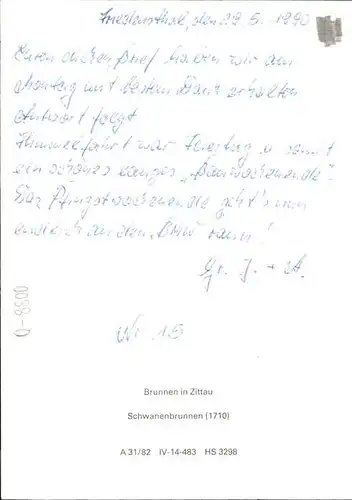 Friedensthal, den 22.5. 1990
Euren dicken Brief haben wir am
Montag mit bestem Dank erhalten
Antwort folgt
Himmelfahrt war Feiertag u. somit
ein schönes langes „Bauwochenende".
Das Pfingstwochenende geht's nun
endlich an den „Bau" ran!
Gr. J. + A.
Nr 15
0-8800
Brunnen in Zittau
Schwanenbrunnen (1710)
A 31/82 IV-14-483 HS 3298